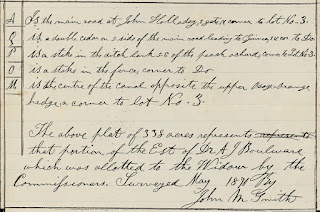 A Is the main road at John Holladay's gate & corner to lot No. 3.
is a double cedar on side of the main road leading to cor. to Do.
P is a stake in the ditch bank S.E. of the peach orchard, corn to Lot No 3
O is a stake in the fence, corner to Do.
M is the centre of the canal opposite the upper osage orange
hedge, a corner to lot No. 3.
The above plat of 338 acres represents represents
that portion of the Est. of Dr. A J Boulware
which was allotted to the Widow by the
Commissioners. Surveyed May 1871 By
John M. Smith